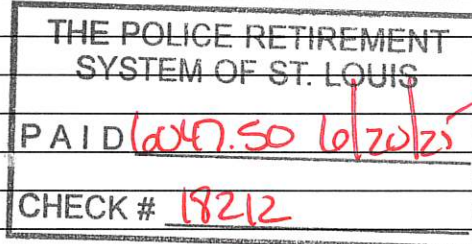 THE POLICE RETIREMENT
SYSTEM OF ST. LOUIS
PAID 6047.50 6/20/25
CHECK # 18212